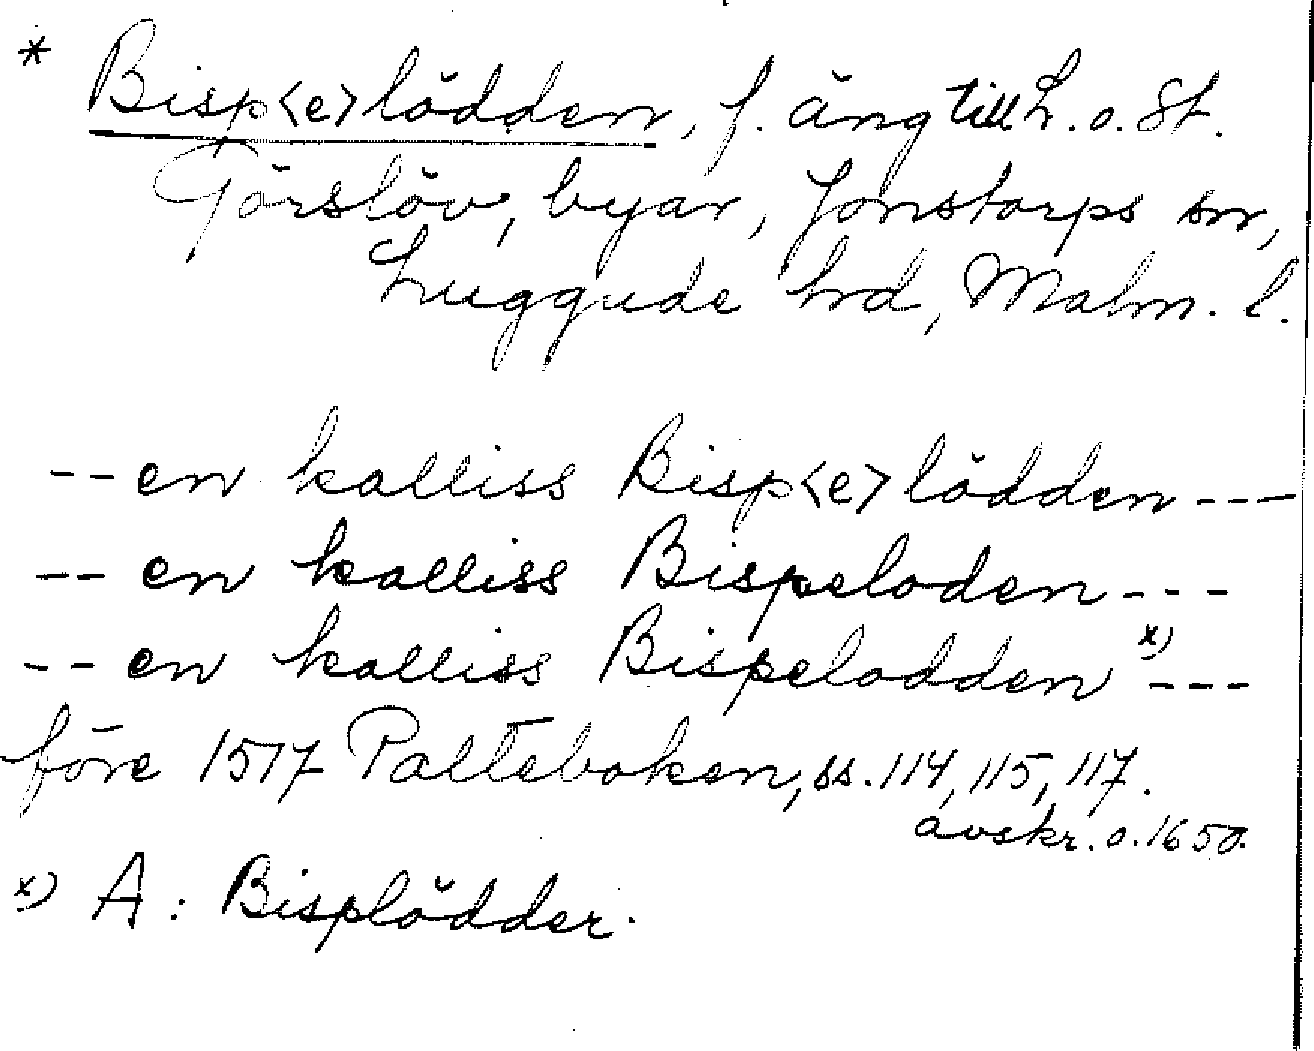 * Bisp<e>lödden, f. äng till L. o. St.
Görslöv, byar, Jonstorps sn,
Luggude hd, Malm. l.
--en kalliss Bisp<e>lödden---
--en kalliss Bispeloden---
--en kalliss Bispelodden x)---
före 1517 Palteboken, ss. 114, 115, 117.
avskr. o. 1650.
x) A: Bisplödder.